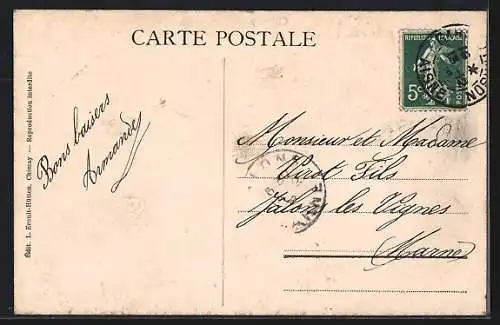 CARTE POSTALE
REPUBLIQUE FRANÇAISE
5c
POSTES
AISNE
Bons baisers
Armande
Monsieur et Madame
Virot Fils
Jalons les Vignes
Marne
Édit. L. Erault-Hütten, Chimay — Reproduction interdite